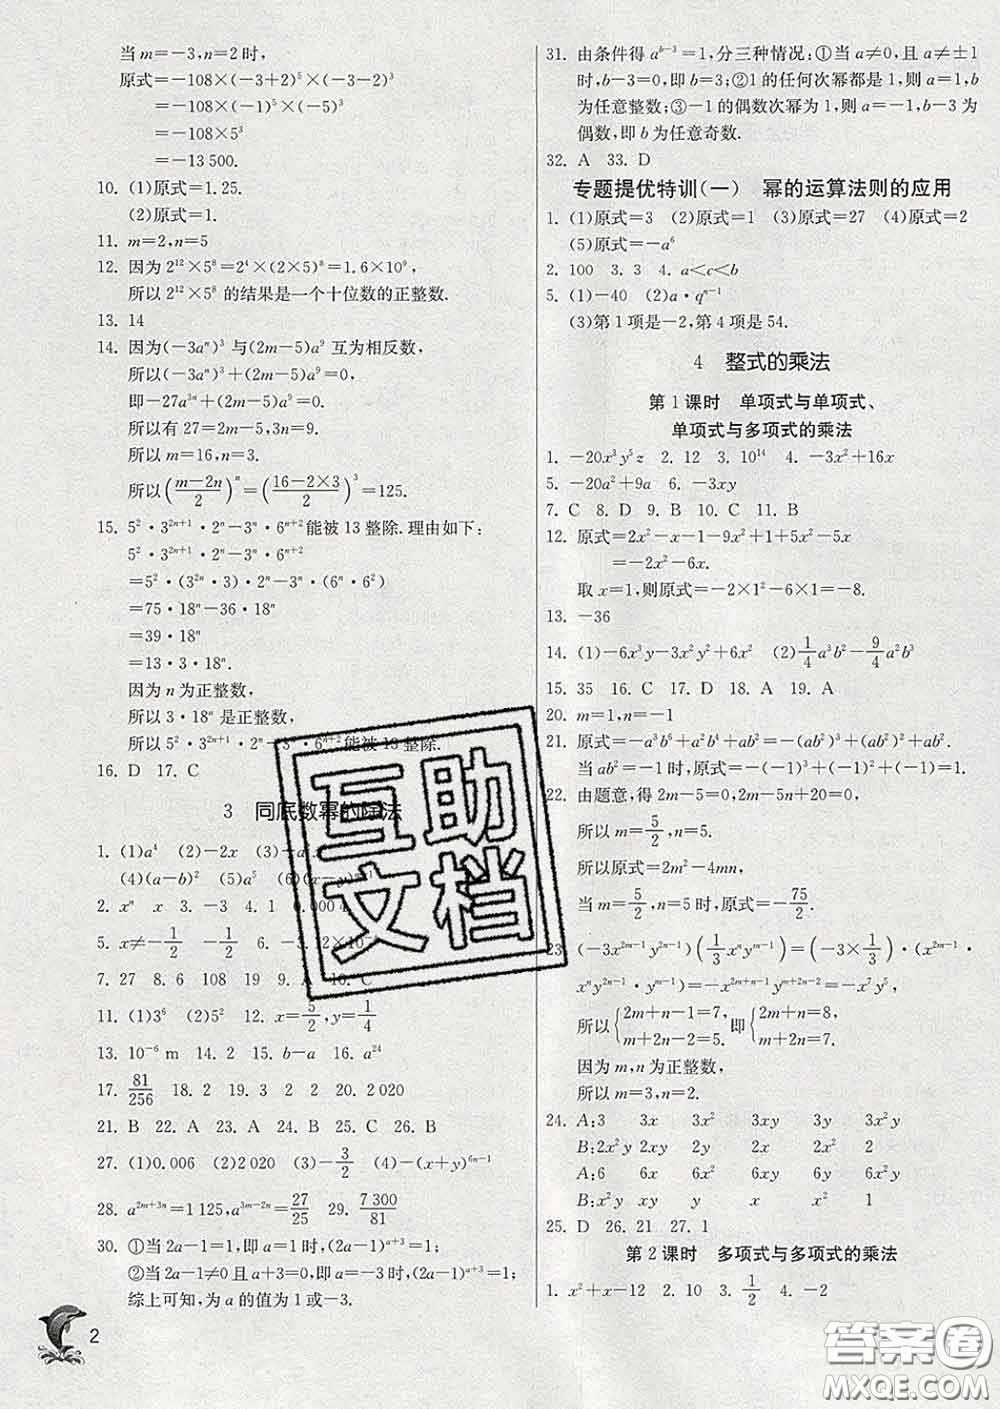 当m=-3,n=2时,
原式=-108×(-3+2)⁵×(-3-2)³
=-108×(-1)⁵×(-5)³
=-108×5³
=-13 500.
10. (1)原式=1.25.
(2)原式=1.
11. m=2,n=5
12. 因为2¹²×5⁸=2⁴×(2×5)⁸=1.6×10⁹,
所以2¹²×5⁸的结果是一个十位数的正整数.
13. 14
14. 因为(-3aⁿ)³与(2m-5)a⁹互为相反数,
所以(-3aⁿ)³+(2m-5)a⁹=0,
即-27a³ⁿ+(2m-5)a⁹=0.
所以有27=2m-5,3n=9.
所以m=16,n=3.
所以((m-2n)/2)ⁿ=((16-2×3)/2)³=125.
15. 5²·3²ⁿ⁺¹·2ⁿ-3ⁿ·6ⁿ⁺²能被13整除.理由如下:
5²·3²ⁿ⁺¹·2ⁿ-3ⁿ·6ⁿ⁺²
=5²·(3²ⁿ·3)·2ⁿ-3ⁿ·(6ⁿ·6²)
=75·18ⁿ-36·18ⁿ
=39·18ⁿ
=13·3·18ⁿ.
因为n为正整数,
所以3·18ⁿ是正整数,
所以5²·3²ⁿ⁺¹·2ⁿ-3ⁿ·6ⁿ⁺²能被13整除.
16. D 17. C
3 同底数幂的除法
1. (1)a⁴ (2)-2x (3)
(4)(a-b)² (5)a⁵
2. xⁿ x 3. -3 4. 1
5. x≠-1/2 -1/2 6.
7. 27 8. 6 108 19 9. A 10. C
11. (1)3⁶ (2)5² 12. x=5/2,y=1/4
13. 10⁻⁶ m 14. 2 15. b-a 16. a²⁴
17. 81/256 18. 2 19. 3 2 2 20. 2 020
21. B 22. A 23. D 24. A 25. C 26. B
27. (1)0.006 (2)2 020 (3)-3/2 (4)-(x+y)⁶ⁿ⁻¹
28. a²ᵐ⁺³ⁿ=1 125,a³ᵐ⁻²ⁿ=27/25 29. 7 300/81
30. ①当2a-1=1,即a=1时,(2a-1)ᵃ⁺³=1;
②当2a-1≠0且a+3=0,即a=-3时,(2a-1)ᵃ⁺³=1;
综上可知,为a的值为1或-3.
2
31. 由条件得aᵇ⁻³=1,分三种情况:①当a≠0,且a≠±1
时,b-3=0,即b=3;②1的任何次幂都是1,则a=1,b
为任意整数;③-1的偶数次幂为1,则a=-1,b-3为
偶数,即b为任意奇数.
32. A 33. D
专题提优特训(一) 幂的运算法则的应用
1. (1)原式=3 (2)原式=1 (3)原式=27 (4)原式=2
(5)原式=-a⁶
2. 100 3. 3 4. a<c<b
5. (1)-40 (2)a·qⁿ⁻¹
(3)第1项是-2,第4项是54.
4 整式的乘法
第1课时 单项式与单项式、
单项式与多项式的乘法
1. -20x³y⁵z 2. 12 3. 10¹⁴ 4. -3x²+16x
5. -20a²+9a 6. -3xy
7. C 8. D 9. B 10. C 11. B
12. 原式=2x²-x-1-9x²+1+5x²-5x
=-2x²-6x.
取x=1,则原式=-2×1²-6×1=-8.
13. -36
14. (1)-6x³y-3x²y²+6x² (2)1/4a³b²-9/4a²b³
15. 35 16. C 17. D 18. A 19. A
20. m=1,n=-1
21. 原式=-a³b⁶+a²b⁴+ab²=-(ab²)³+(ab²)²+ab².
当ab²=-1时,原式=-(-1)³+(-1)²+(-1)=1.
22. 由题意,得2m-5=0,n-5=0,
所以m=5/2,n=5.
所以原式=2m²-4mn,
当m=5/2,n=5时,原式=-75/2.
23. (-3x²ᵐ⁻¹y²ⁿ⁻¹)(1/3xⁿyᵐ⁻¹)=(-3×1/3)·(x²ᵐ⁻¹·
xⁿy²ⁿ⁻¹·yᵐ⁻¹)=-x²ᵐ⁺ⁿ⁻¹yᵐ⁺²ⁿ⁻²=-x⁷y⁵,
所以{2m+n-1=7, m+2n-2=5. 即{2m+n=8, m+2n=7.
因为m,n为正整数,
所以m=3,n=2.
24. A:3 3x 3x² 3xy 3x²y
B:2x²y 2xy 2y 2x 2
A:6 6x 6x² 6xy 6x²y
B:x²y xy y x x² 1
25. D 26. 21 27. 1
第2课时 多项式与多项式的乘法
1. x²+x-12 2. 10 3. 1/2 4. -2
互助
文档
答案圈
MXQE.COM